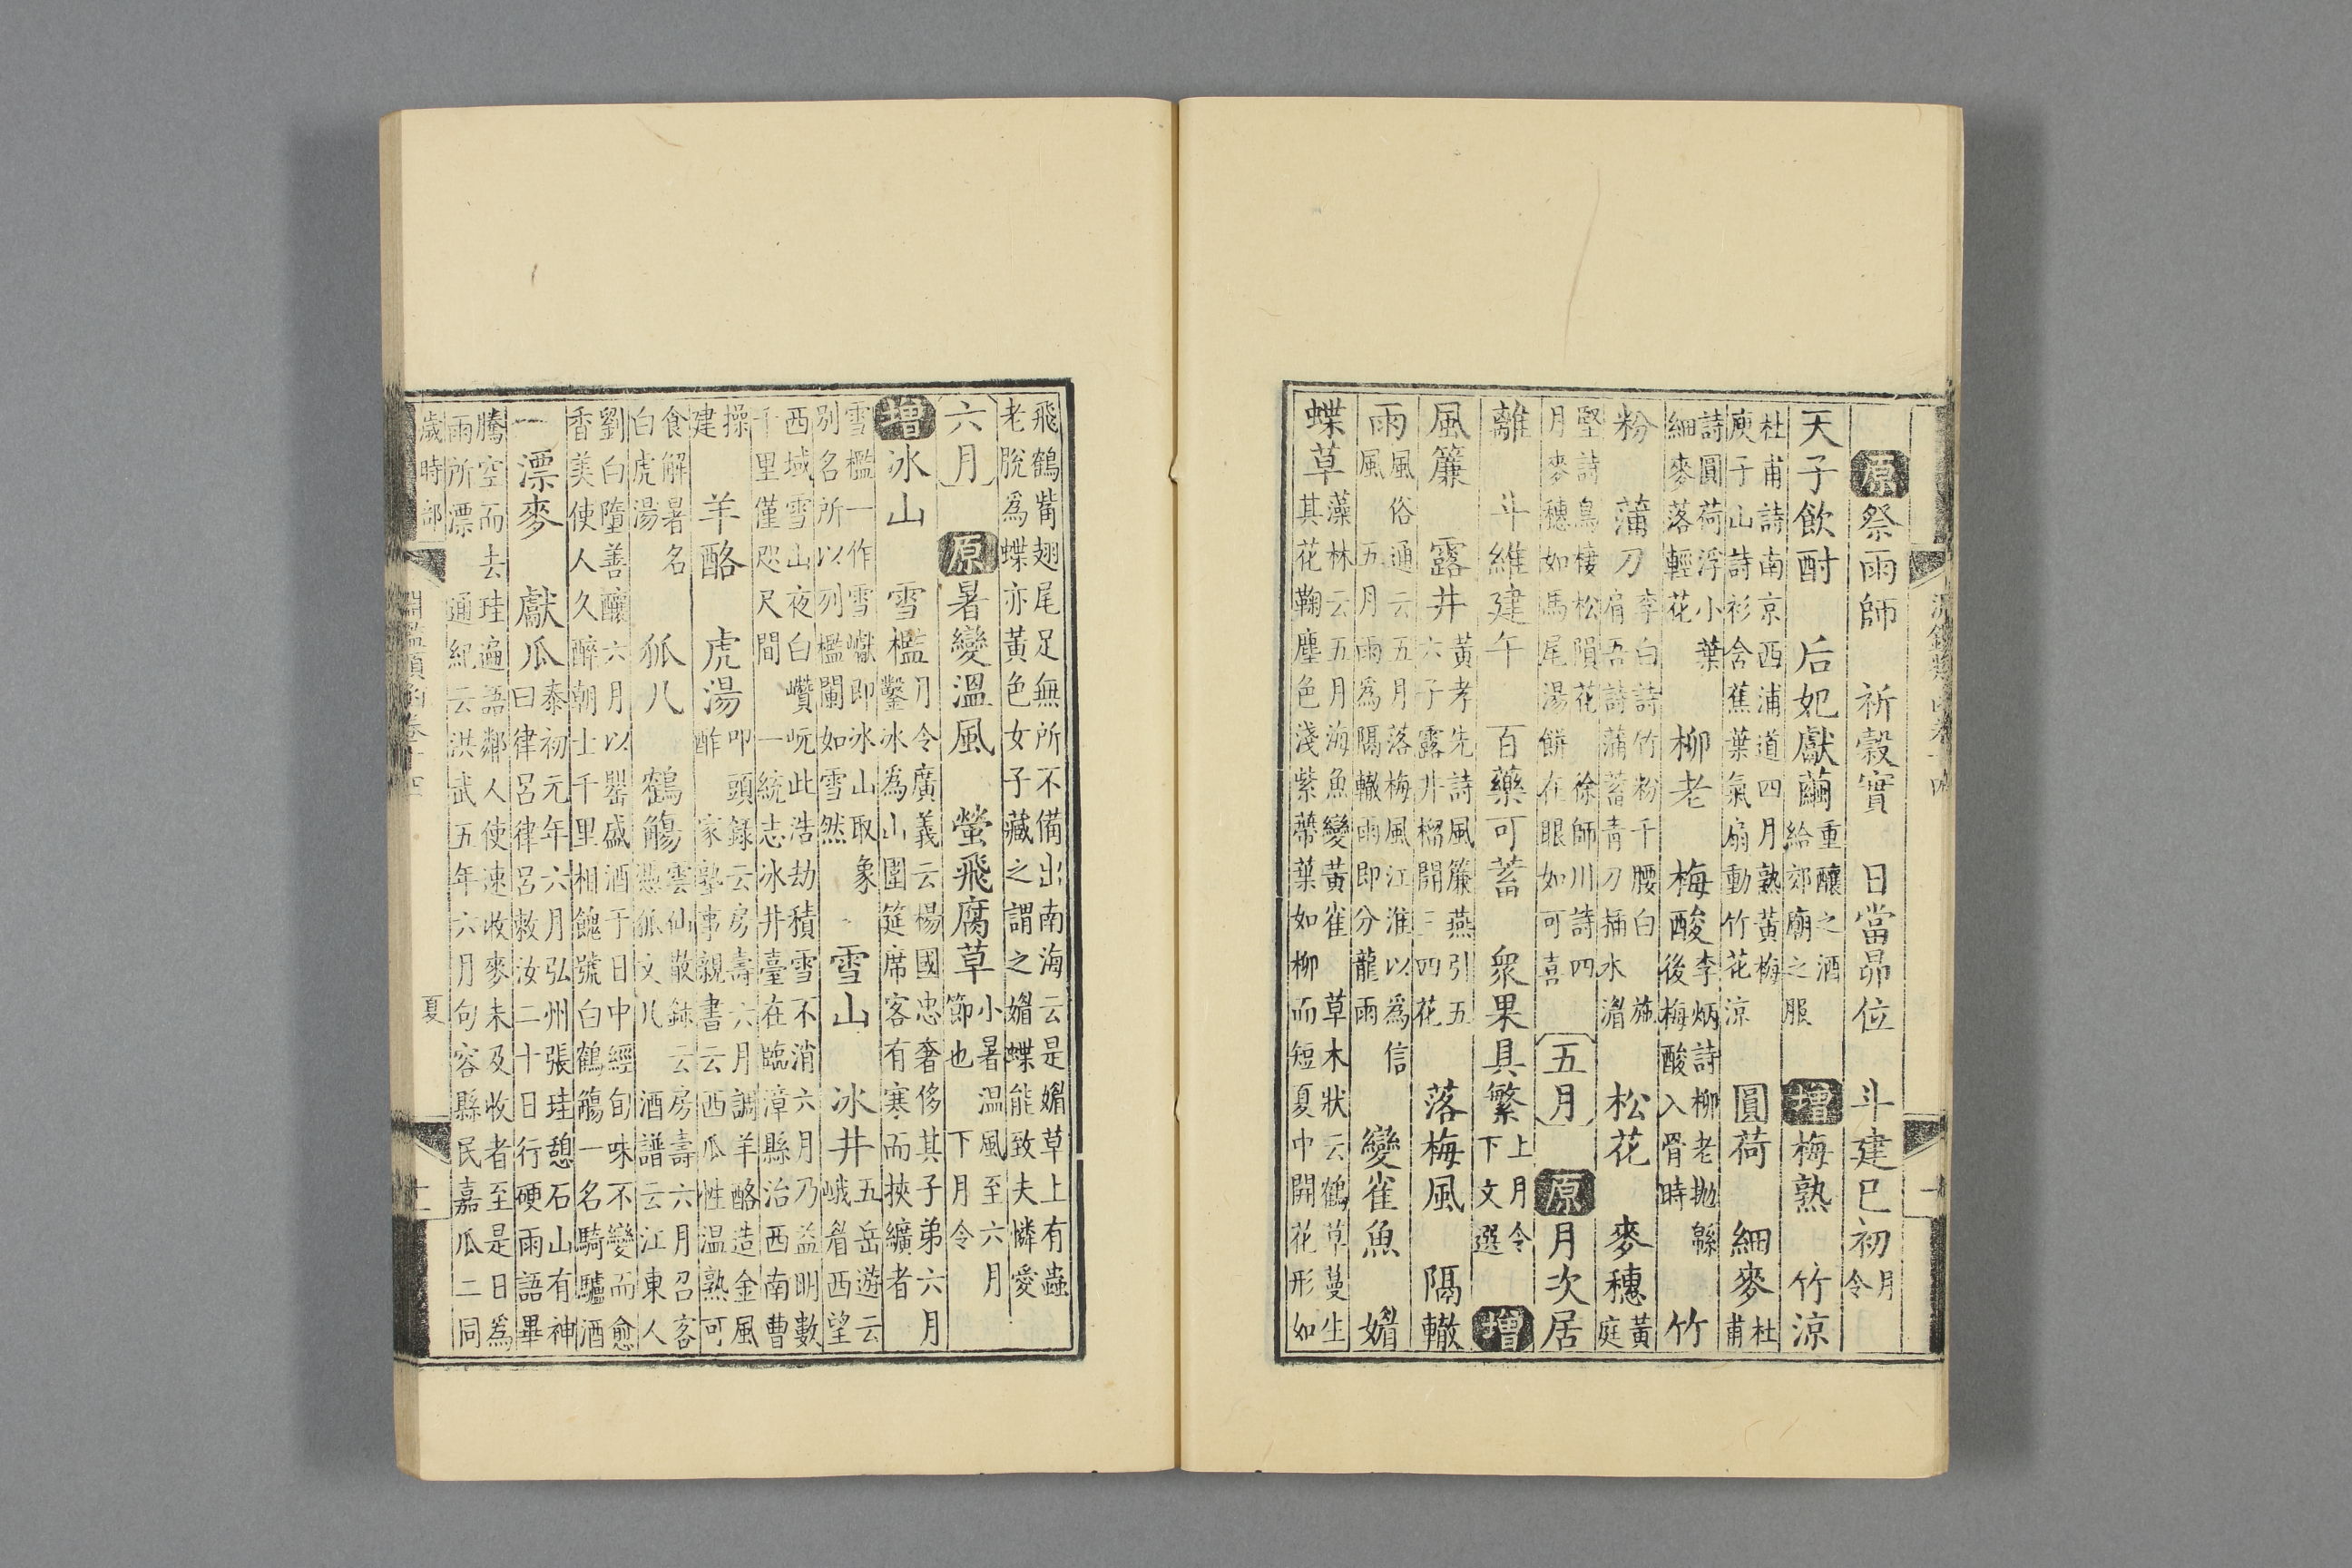 淵鑑類函卷十四
原祭雨師　祈穀實　日當昴位　斗建巳初月令
天子飲酎　后妃獻繭重釀之酒給郊廟之服　增梅熟　竹涼
杜甫詩南京西浦道四月熟黃梅庾子山詩衫含蕉葉氣扇動竹花涼　圓荷　細麥杜甫
詩圓荷浮小葉細麥落輕花　柳老　梅酸李炳詩柳老拋緜後梅酸入骨時　竹
粉　蒲刀李白詩竹粉千腰白　施肩吾詩蒲蓄青刀插水湄　松花　麥穗黃庭
堅詩鳥棲松隕花　徐師川詩四月麥穗如馬尾湯餅在眼如可喜　五月　原月次居
離　斗維建午　百藥可蓄　衆果具繁上月令下文選　增
風簾　露井黃孝先詩風簾燕引五六子露井榴開三四花　落梅風　隔轍
雨風俗通云五月落梅風江淮以為信風　五月雨為隔轍雨即分龍雨　變雀魚　媚
蝶草藻林云五月海魚變黃雀　草木狀云鶴草蔓生其花麴塵色淺紫蔕葉如柳而短夏中開花形如
飛鶴觜翅尾足無所不備出南海云是媚草上有蟲老脫為蝶亦黃色女子藏之謂之媚蝶能致夫憐愛
六月　原暑變溫風　螢飛腐草小暑温風至六月節也　下月令
增冰山　雪檻月令廣義云楊國忠奢侈其子弟六月鑿冰為山圍筵席客有寒而挾纊者
雪檻一作雪巘即冰山取象別名所以列檻闌如雪然　雪山　冰井五岳遊云峨眉西望
西域雪山夜白巑岏此浩劫積雪不消六月乃益明數千里僅咫尺間　一統志冰井臺在臨漳縣治西南曹
操建　羊酪　虎湯叩頭錄云房壽六月調羊酪造金風酢　家塾事親書云西瓜性温熟可
食解暑名白虎湯　狐几　鶴觴雲仙散錄云房壽六月召客憑狐文几　酒譜云江東人
劉白墮善釀六月以甖盛酒于日中經旬味不變而愈香美使人久醉朝士千里相餽號白鶴觴一名騎驢酒
一漂麥　獻瓜泰初元年六月弘州張珪憩石山有神曰律呂律呂敕汝二十日行硬雨語畢
騰空而去珪遍語鄰人使速收麥未及收者至是日為雨所漂　通紀云洪武五年六月句容縣民嘉瓜二同
歲時部　淵鑑類函卷十四　夏